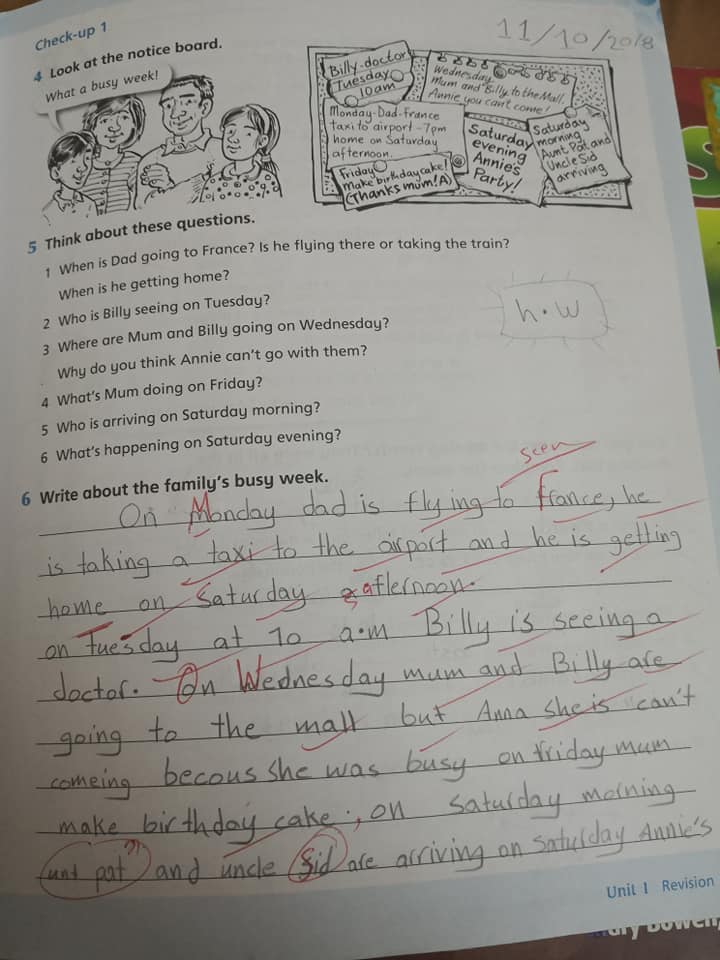 Check-up 1
11/10/2018
4 Look at the notice board.
What a busy week!
Billy-doctor
Tuesday
10am
Wednesday
Mum and Billy to the Mall.
Annie you can't come!
Monday-Dad-France
taxi to airport-7pm
home on Saturday
afternoon.
Friday
make birthday cake!
(Thanks mum! A)
Saturday
evening
Annie's
Party!
Saturday
morning
Aunt Pat and
Uncle Sid
arriving
5 Think about these questions.
1 When is Dad going to France? Is he flying there or taking the train?
When is he getting home?
2 Who is Billy seeing on Tuesday?
3 Where are Mum and Billy going on Wednesday?
Why do you think Annie can't go with them?
4 What's Mum doing on Friday?
5 Who is arriving on Saturday morning?
6 What's happening on Saturday evening?
h.w
seen
6 Write about the family's busy week.
On Monday dad is flying to france, he
is taking a taxi to the airport and he is getting
home on Saturday afternoon.
on Tuesday at 10 a.m Billy is seeing a
doctor. On Wednesday mum and Billy are
going to the mall but Anna she is can't
comeing becous she was busy on friday mum
make birthday cake., on saturday morning
unt pat and uncle Sid are arriving on saturday Annie's
Unit 1 Revision
Mary Bowen,